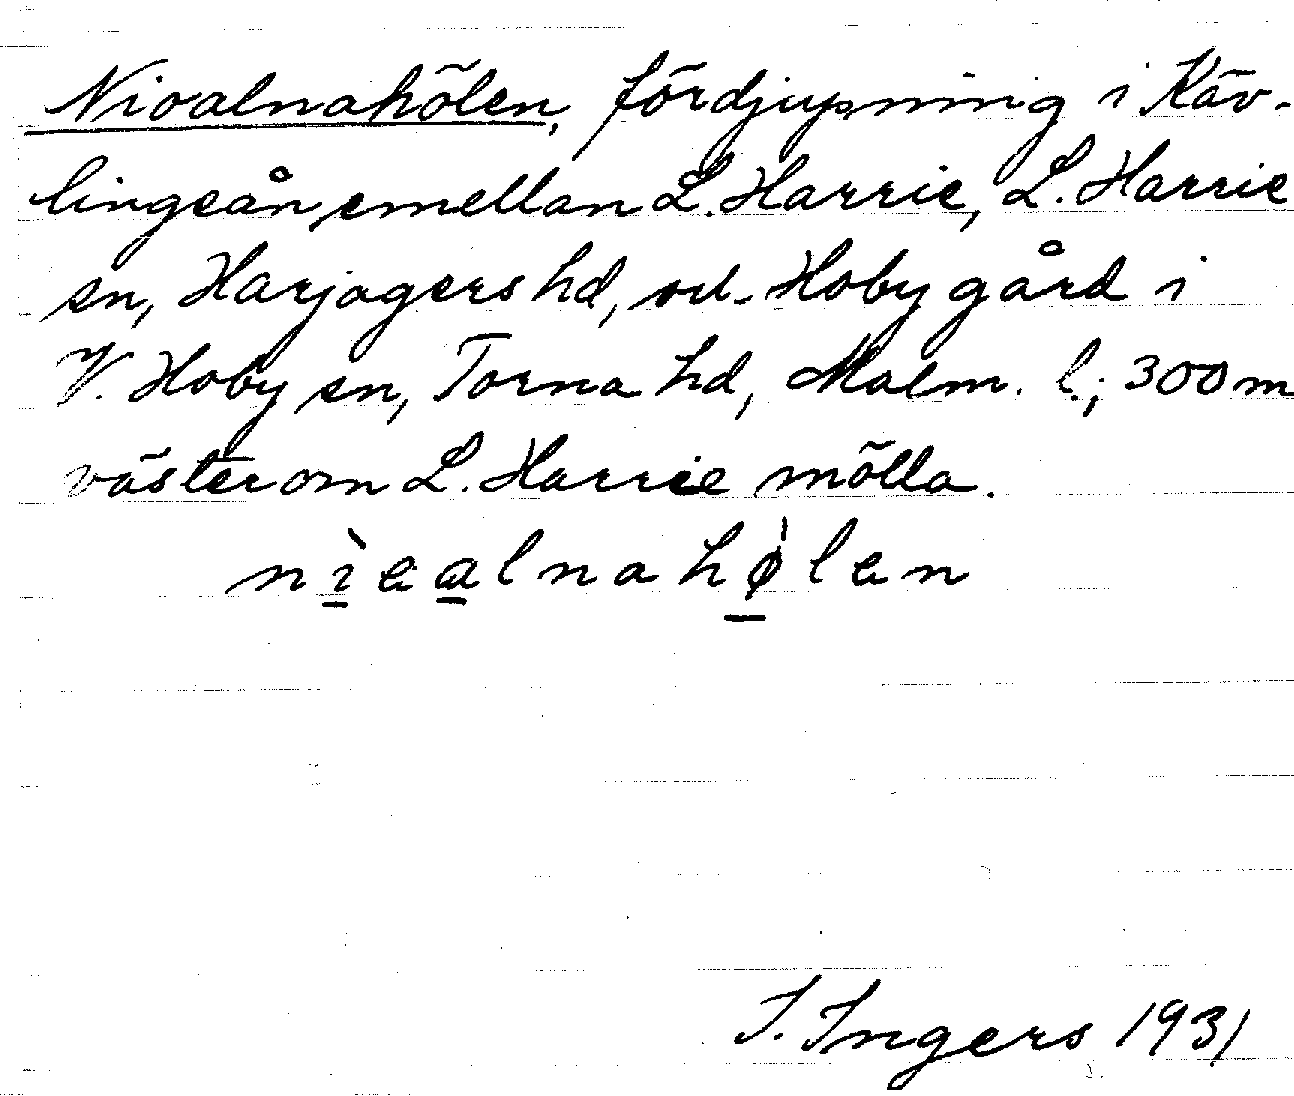 Nioalnahölen, fördjupning i Käv-
lingeån, emellan L. Harrie, L. Harrie
sn, Harjagers hd, o. Hoby gård i
V. Hoby sn, Torna hd, Malm. l.; 300 m
väster om L. Harrie mölla.
nìealnahø̀len
I. Ingers 1931